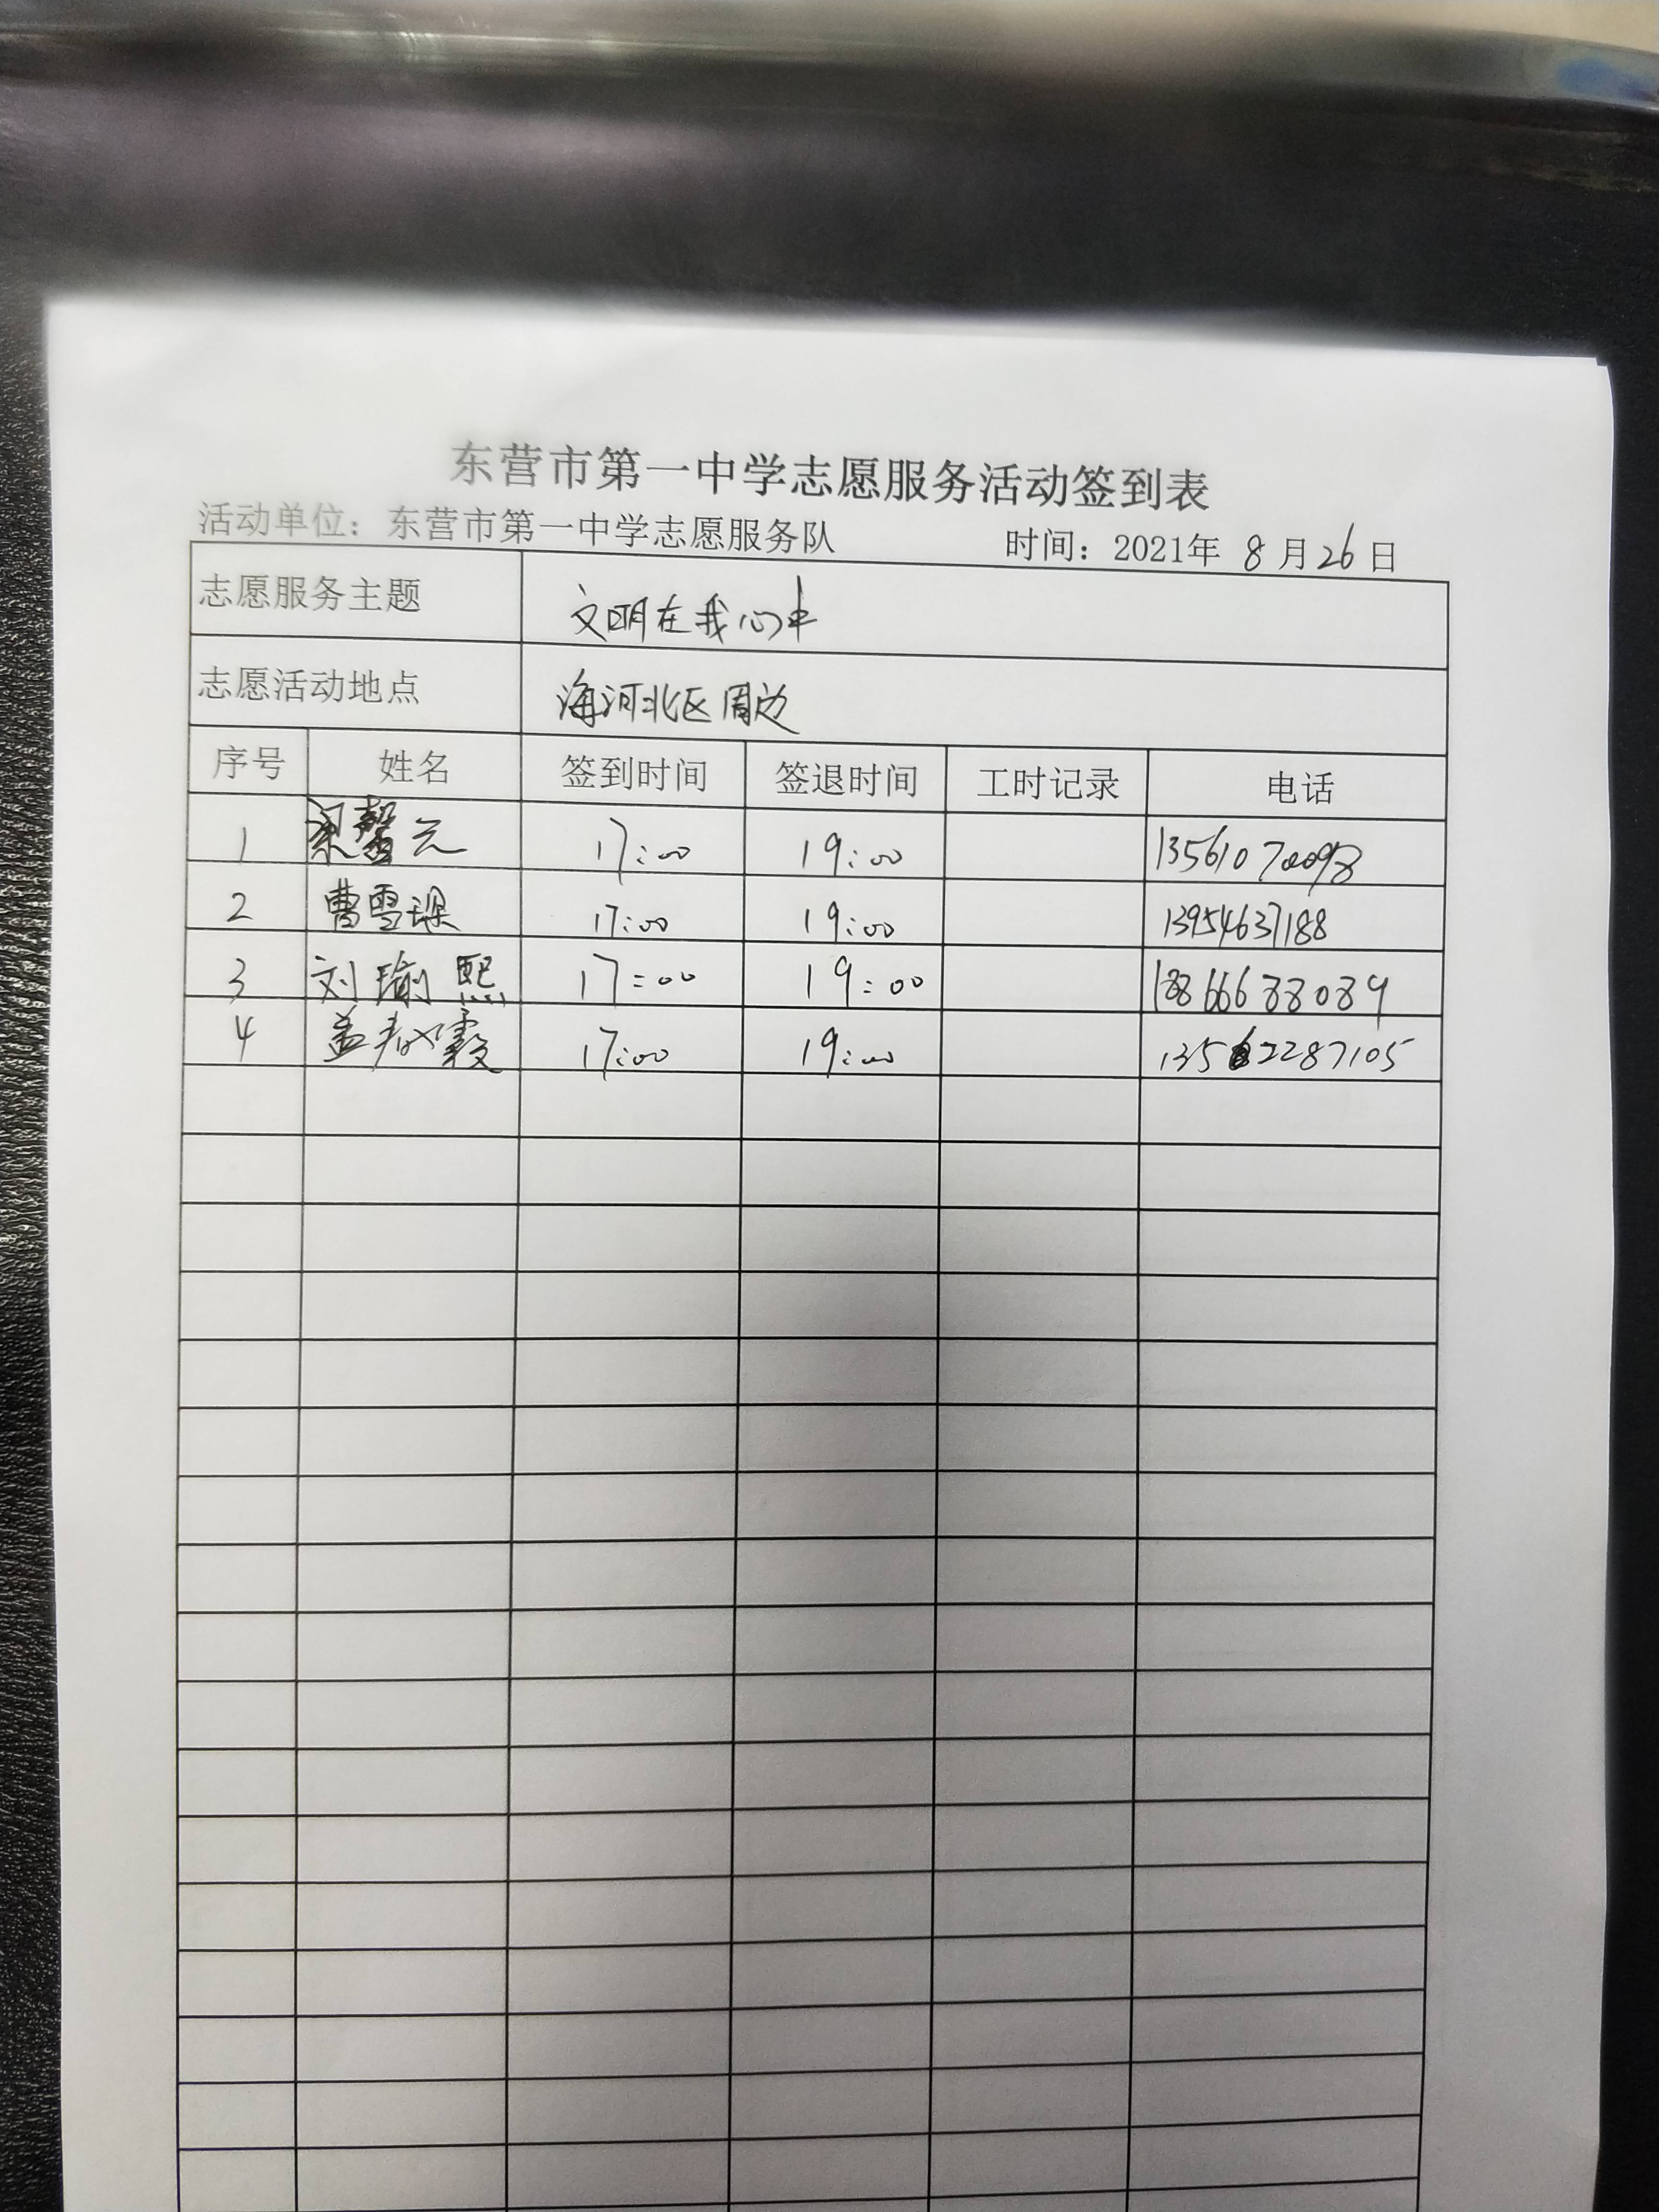 东营市第一中学志愿服务活动签到表
活动单位：东营市第一中学志愿服务队 时间：2021年 8 月 26 日
志愿服务主题 文明在我心中
志愿活动地点 海河北区周边
序号 姓名 签到时间 签退时间 工时记录 电话
1 梁馨元 17:00 19:00
2 曹雪琛 17:00 19:00 13954637188
3 刘瑜熙 17:00 19:00 18866688089
4 盖 17:00 19:00 13562287105